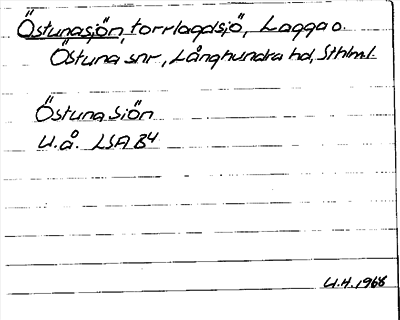 Östunasjön, torrlagd sjö, Lagga o.
Östuna snr, Långhundra hd, Sthlm l.
Östuna Siön
u.å. LSA B4
U.H. 1968